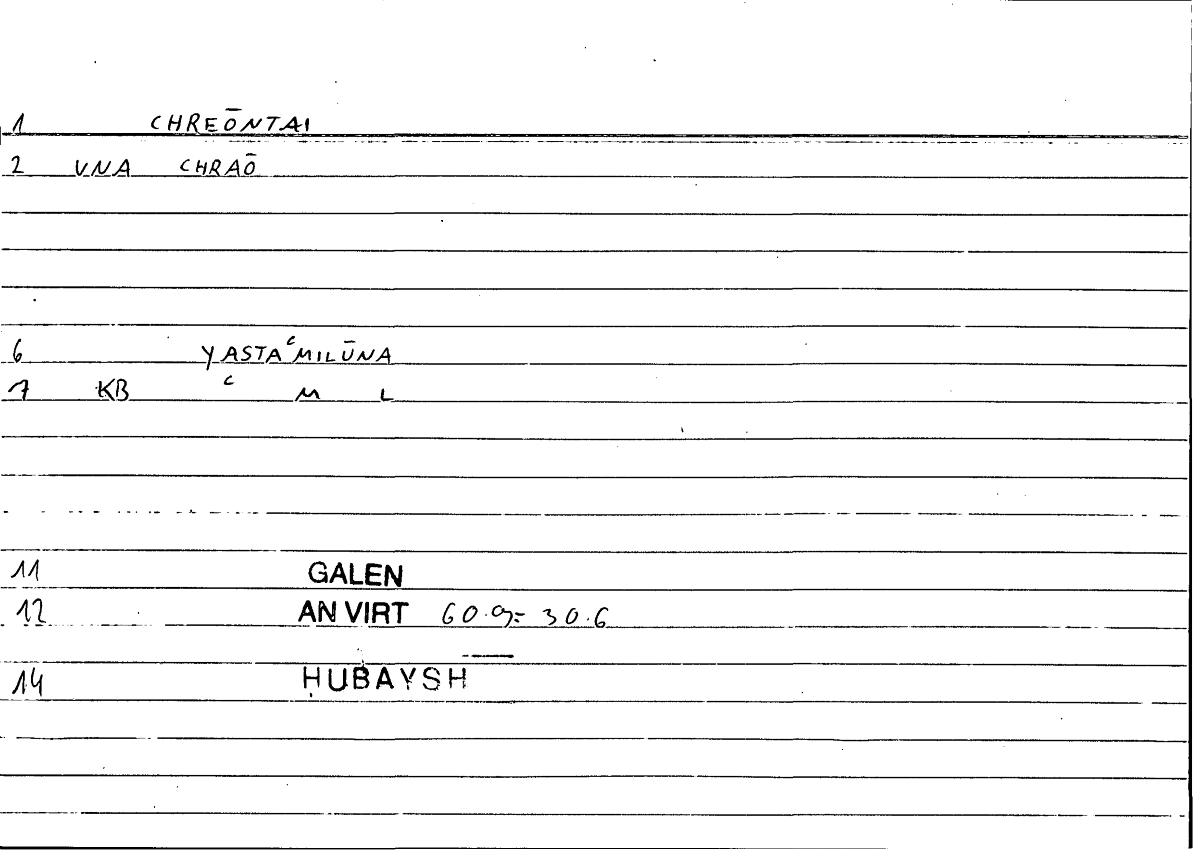 1 CHREŌNTAI
2 VNA CHRAŌ
6 YASTAᶜMILŪNA
7 KB ᶜ M L
11 GALEN
12 AN VIRT 60.9= 30.6
14 ḤUBAYSH